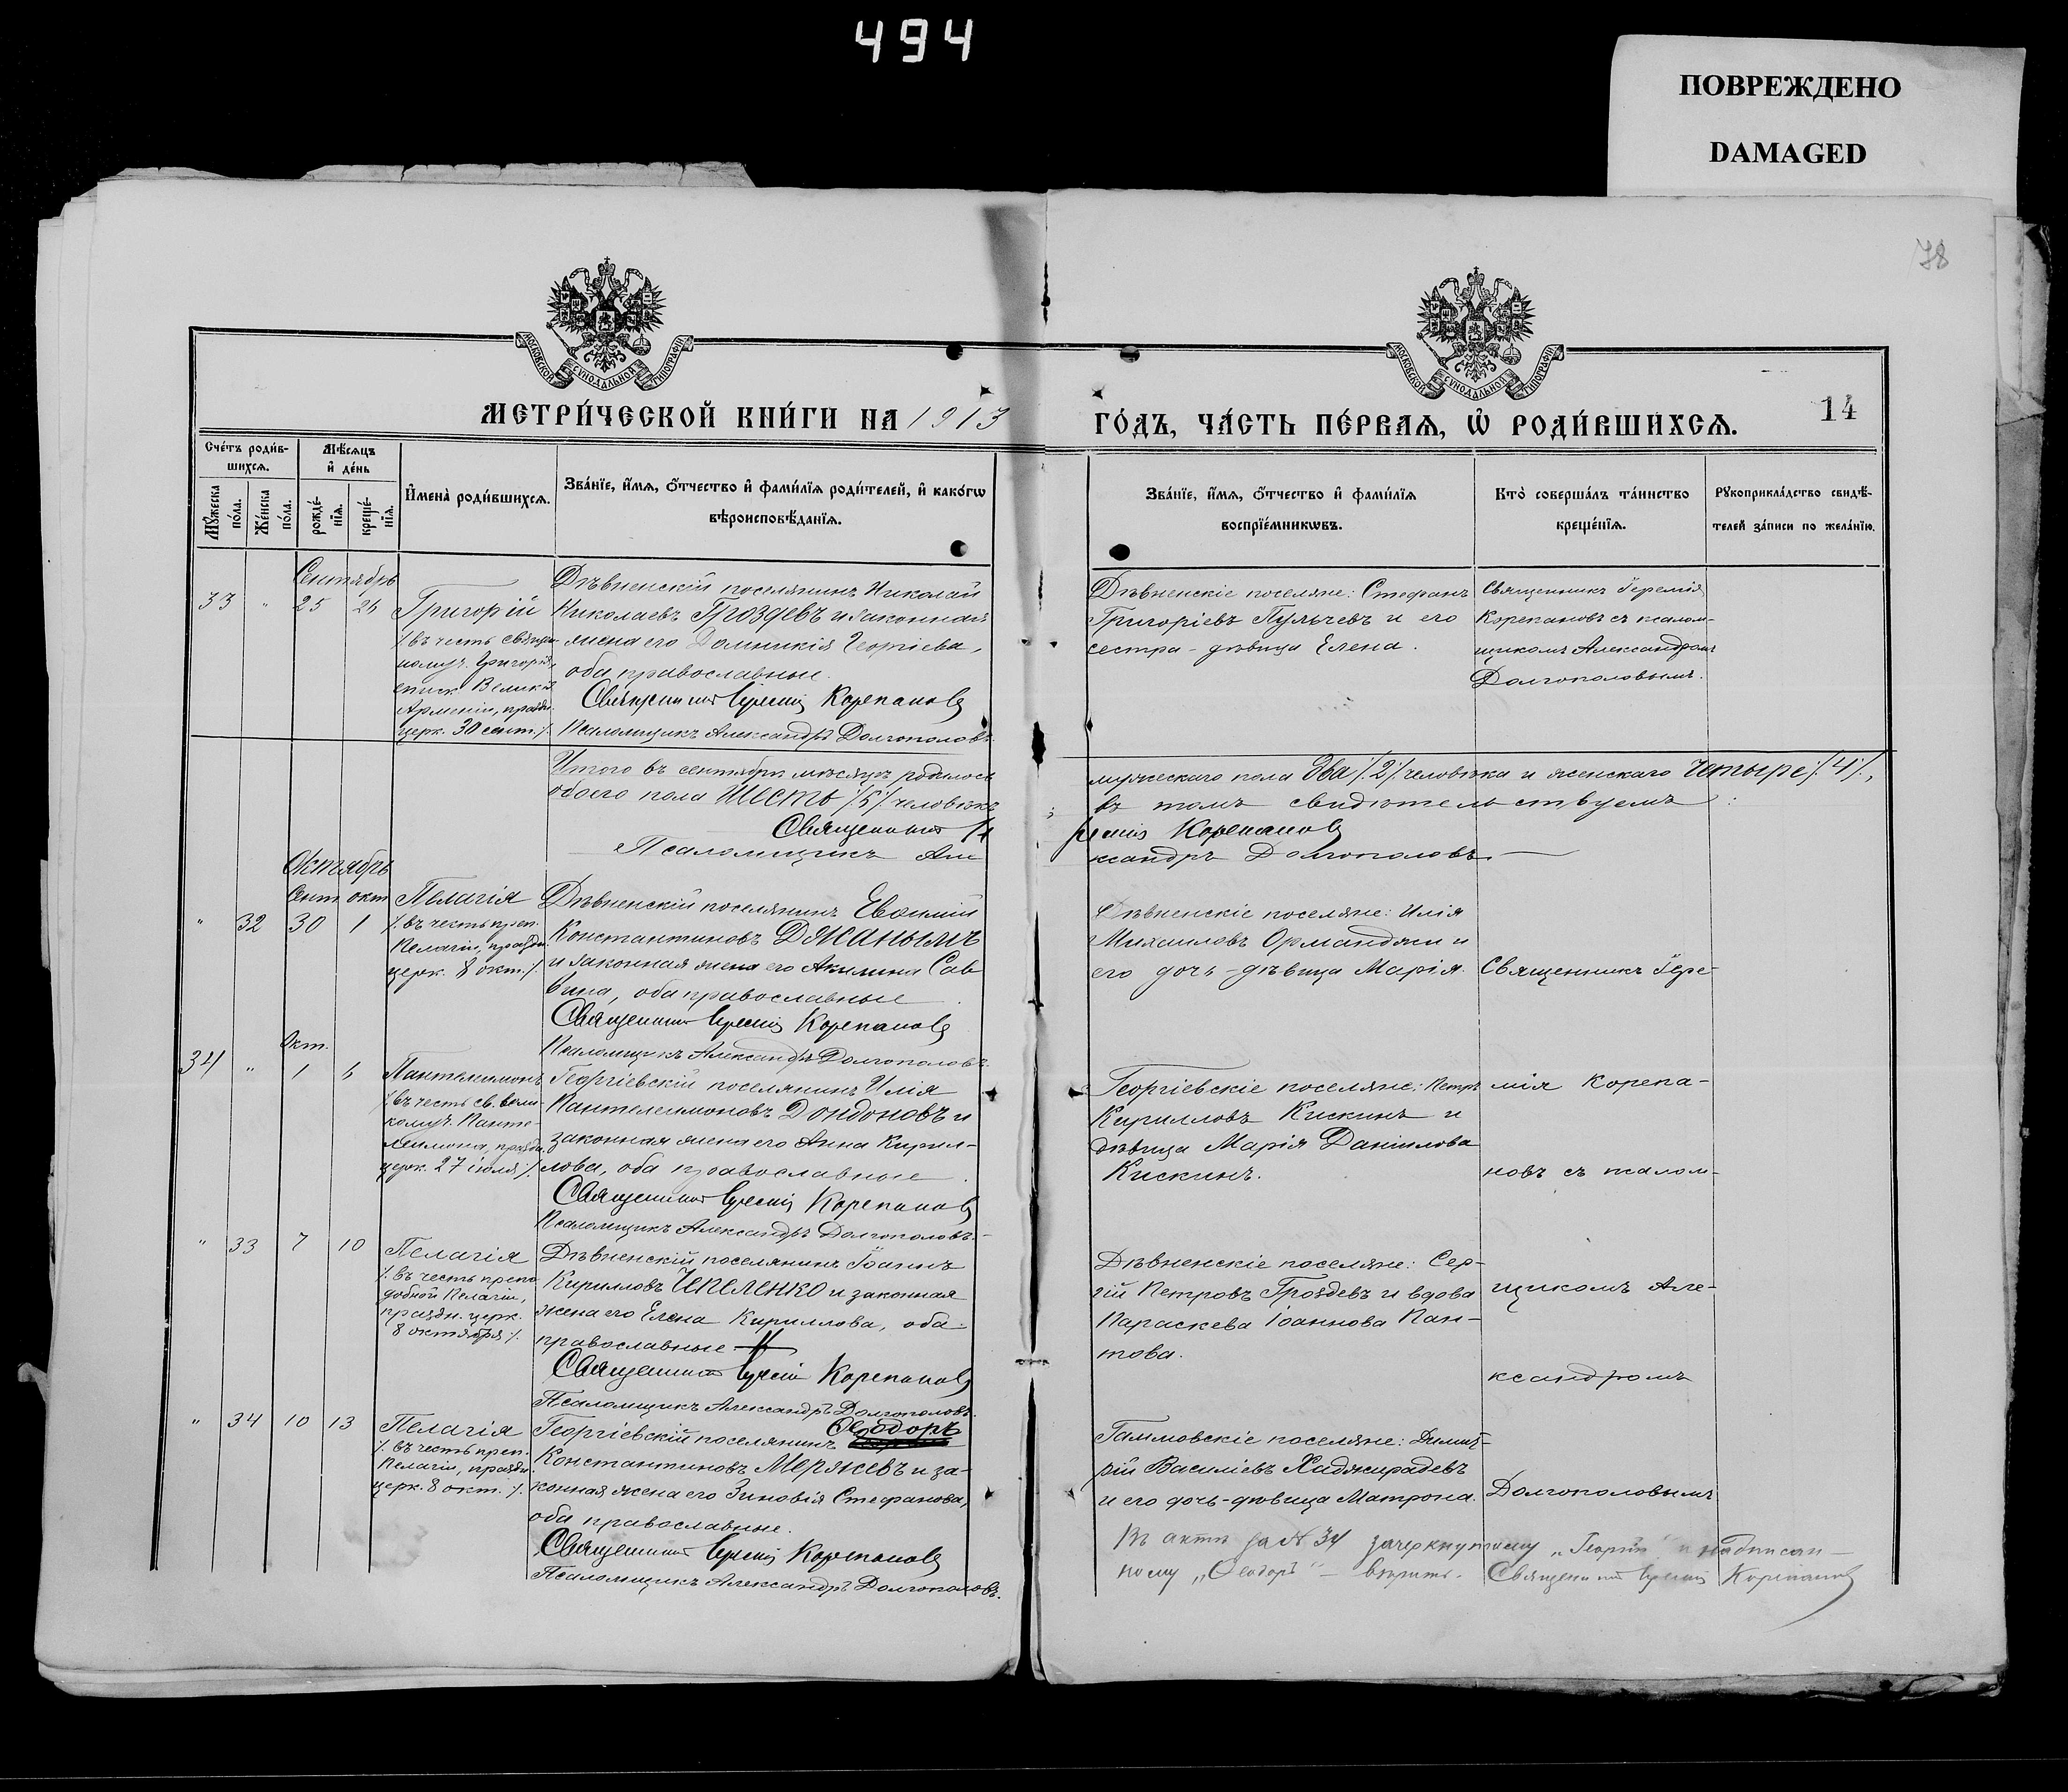 494
ПОВРЕЖДЕНО
DAMAGED
78
МОСКОВСКОЙ СУНОДАЛЬНОЙ ТИПОГРАФІИ
МОСКОВСКОЙ СУНОДАЛЬНОЙ ТИПОГРАФІИ
МЕТРИ́ЧЕСКОЙ КНИ́ГИ НА 1913
ГО́ДЪ, ЧА́СТЬ ПЕ́РВАѦ, Ѡ҆ РОДИ́ВШИХСѦ.
14
Сче́тъ роди́в-
шихсѧ.
Мѣ́сѧцъ
и҆ де́нь
Мꙋ́жеска
по́ла.
Же́нска
по́ла.
рожде́-
нїѧ.
креще́-
нїѧ.
И҆мена̀ роди́вшихсѧ.
Зва́нїе, и҆́мѧ, ѻ҆́тчество и҆ фами́лїѧ роди́телей, и҆ како́гѡ
вѣроисповѣ́данїѧ.
Зва́нїе, и҆́мѧ, ѻ҆́тчество и҆ фами́лїѧ
воспрїе́мникѡвъ.
Кто̀ соверша́лъ та́инство
креще́нїѧ.
Рꙋкоприкла́дство свидѣ́-
телей за́писи по жела́нїю.
Сентябрь
33 " 25 26
Григорій
/.въ честь священ-
номуч. Григорія,
еписк. Великой
Арменіи, праздн.
церк. 30 сент./.
Дѣвненскій поселянинъ Николай
Николаевъ Гроздевъ и законная
жена его Домникія Георгіева,
оба православные.
Священникъ Іеремія Корепановъ
Псаломщикъ Александръ Долгополовъ.
Дѣвненскіе поселяне: Стефанъ
Григоріевъ Пульчевъ и его
сестра-дѣвица Елена.
Священникъ Іеремія
Корепановъ съ псалом-
щикомъ Александромъ
Долгополовымъ.
Итого въ сентябрѣ мѣсяцѣ родилось
обоего пола шесть /6/ человѣкъ
Священникъ Іе
Псаломщикъ Але
мужескаго пола два /.2/. человѣка и женскаго четыре /.4/.,
въ томъ свидѣтельствуемъ:
ремія Корепановъ
ксандръ Долгополовъ.
Октябрь
Сент. окт.
" 32 30 1
Пелагія
/.въ честь преп.
Пелагіи, праздн.
церк. 8 окт./.
Дѣвненскій поселянинъ Евѳимій
Константиновъ Джанымъ
и законная жена его Акилина Сав-
вина, оба православные.
Священникъ Іеремія Корепановъ
Псаломщикъ Александръ Долгополовъ.
Дѣвненскіе поселяне: Илія
Михаиловъ Орманджи и
его дочь-дѣвица Марія.
Священникъ Іере-
Окт.
34 " 1 6
Пантелеимонъ
/.въ честь св. вели-
комуч. Панте-
леимона, праздн.
церк. 27 іюля/.
Георгіевскій поселянинъ Илія
Пантелеимоновъ Дондоновъ и
законная жена его Анна Кирил-
лова, оба православные.
Священникъ Іеремія Корепановъ
Псаломщикъ Александръ Долгополовъ.
Георгіевскіе поселяне: Петръ
Кирилловъ Кискинъ и
дѣвица Марія Даніилова
Кискинъ.
мія Корепа-
новъ съ псалом-
" 33 7 10
Пелагія
/.въ честь препо-
добной Пелагіи,
праздн. церк.
8 октября/.
Дѣвненскій поселянинъ Іоаннъ
Кирилловъ Чепеленко и законная
жена его Елена Кириллова, оба
православные
Священникъ Іеремія Корепановъ
Псаломщикъ Александръ Долгополовъ.
Дѣвненскіе поселяне: Сер-
гій Петровъ Гроздевъ и вдова
Параскева Іоаннова Пан-
това.
щикомъ Але-
ксандромъ
" 34 10 13
Пелагія
/.въ честь преп.
Пелагіи, праздн.
церк. 8 окт./.
Ѳеодоръ
Георгіевскій поселянинъ
Константиновъ Мержевъ и за-
конная жена его Зиновія Стефанова,
оба православные.
Священникъ Іеремія Корепановъ
Псаломщикъ Александръ Долгополовъ.
Гаммовскіе поселяне: Димит-
рій Василіевъ Хаджирадевъ
и его дочь-дѣвица Матрона.
Долгополовымъ
Въ актѣ за № 34 зачеркнутому „Георгій" и надписан-
ному „Ѳеодоръ" – вѣрить. Священникъ Іеремія Корепановъ